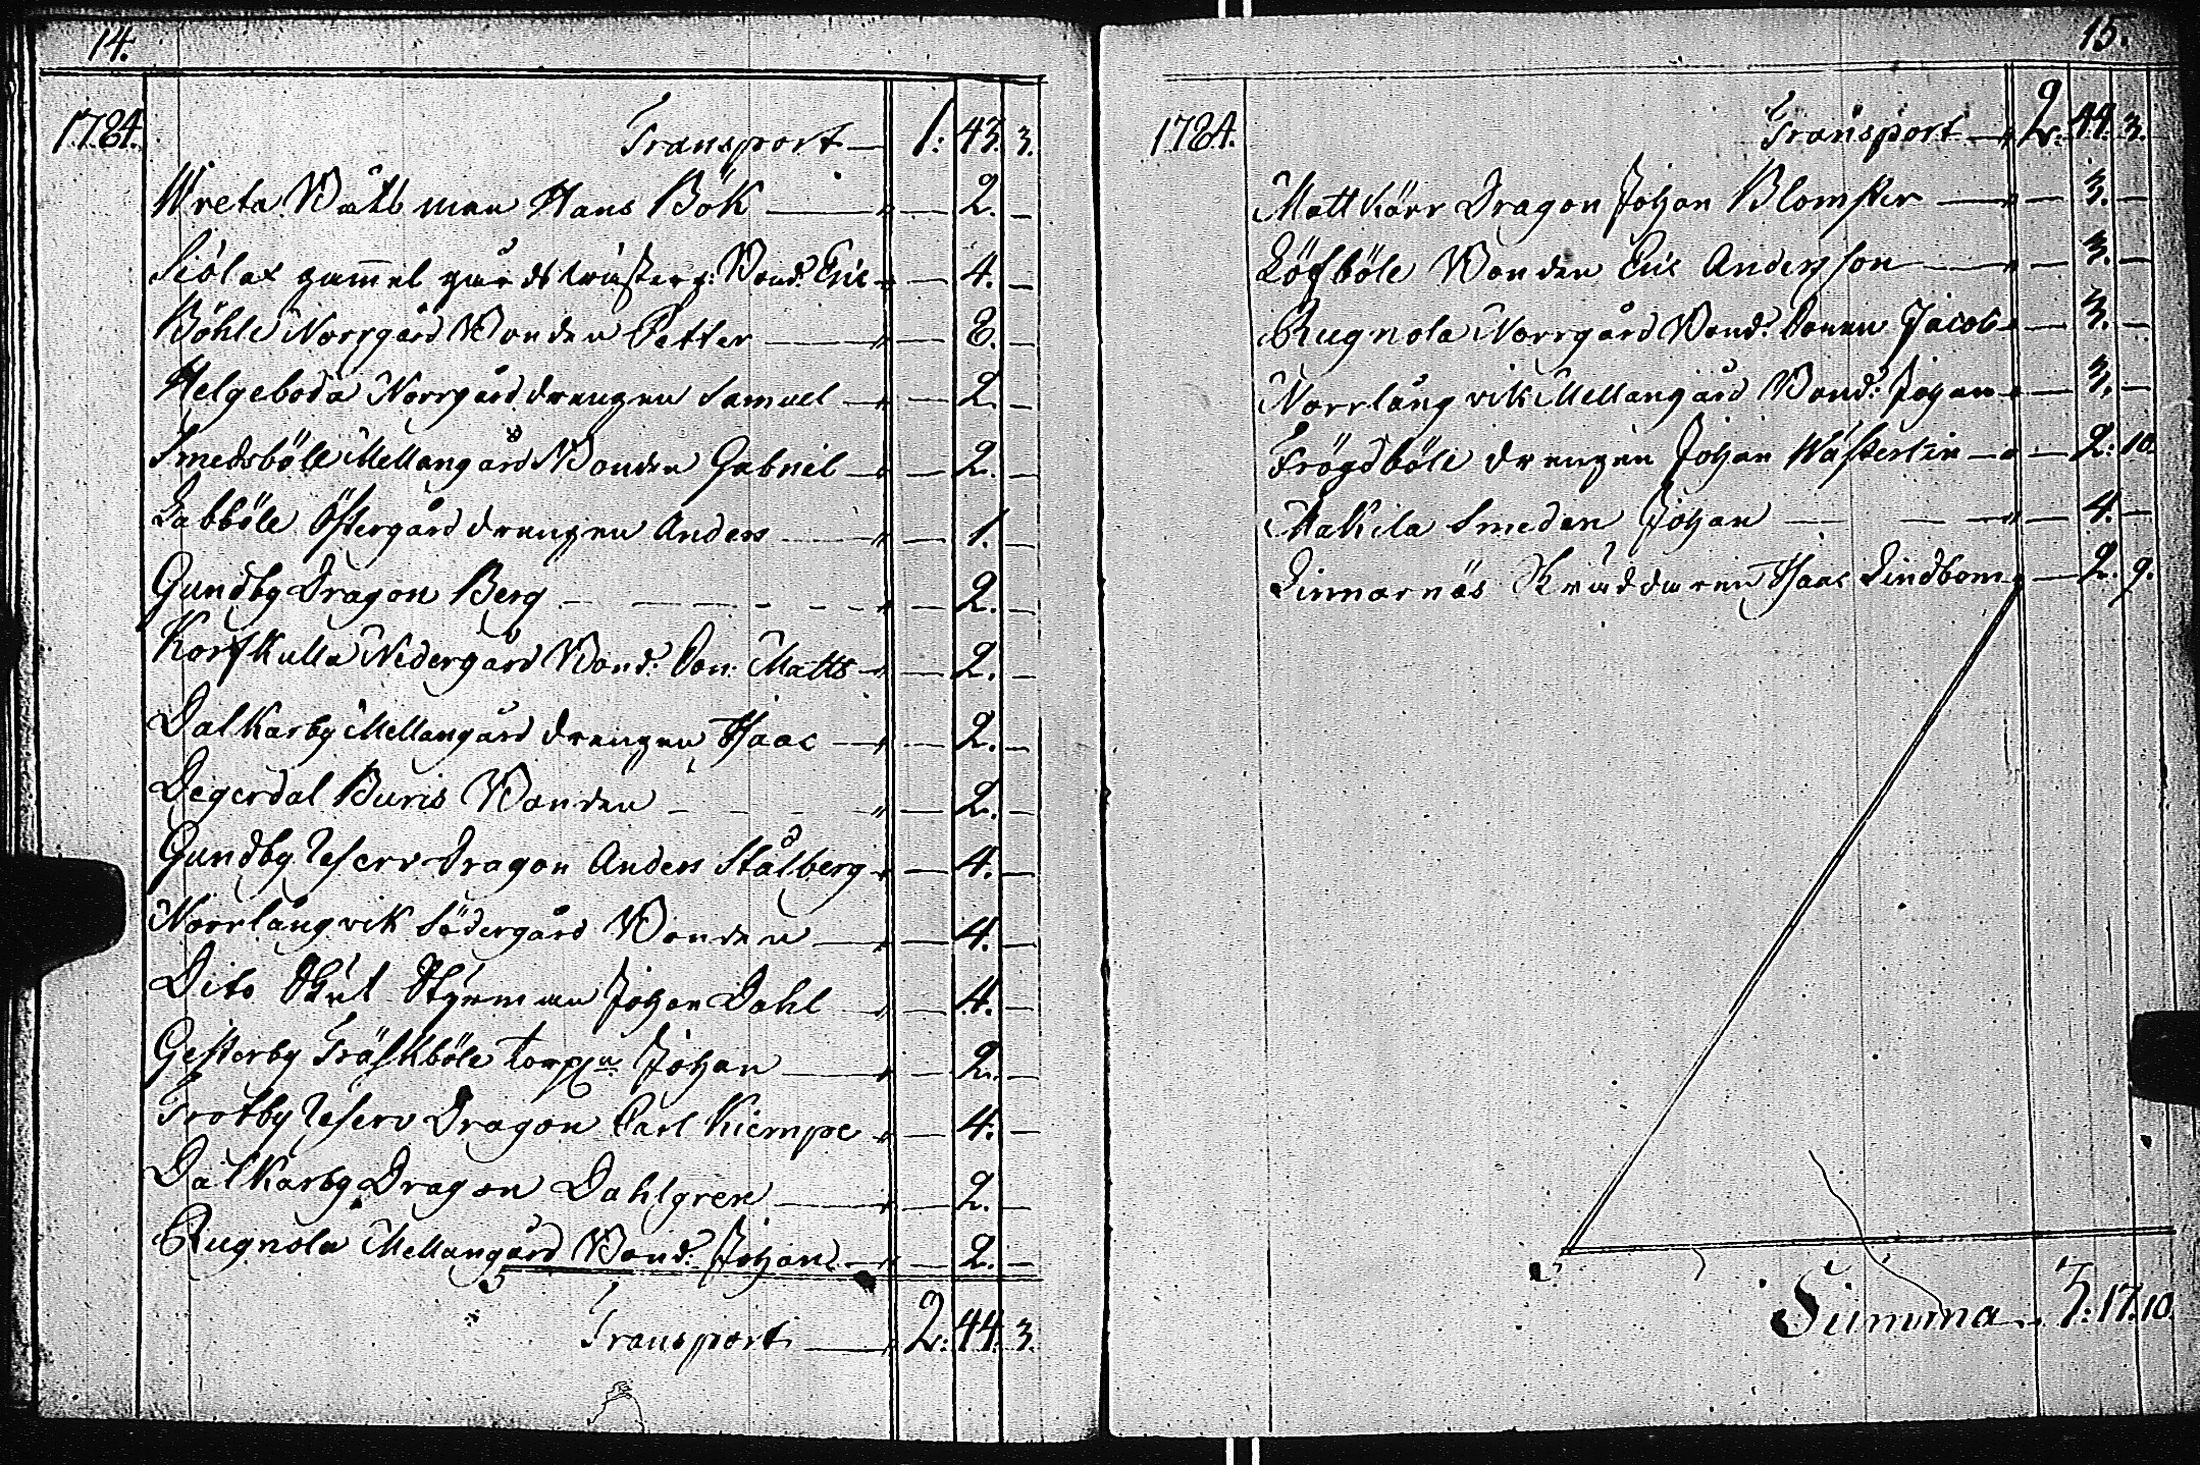 14.
1784. Transport — 1: 43. 3.
Wreta Båtsman Hans Bök — " — 2. —
Siölax gammelgårds Bond. Eric " — 4. —
Böhle Norrgård Bonden Petter — " — 8. —
Helgeboda Norrgård drengen Samuel — " — 2. —
Smedsböle Mellangård Bonden Gabriel — " — 2. —
Labböle Östergård drengen Anders — " — 1. —
Gundby Dragon Berg — " — 2. —
Korfkulla Nedergård Bond. Son: Matts — " — 2. —
Dalkarby Mellangård drengen Isaac — " — 2. —
Degerdal Buris Bonden — " — 2. —
Gundby Reserv Dragon Anders Stålberg " — 4. —
Norrlångvik Södergård Bonden — " — 4. —
Dito Styrman Johan Dahl — " — 4. —
Gesterby Träskböle torp:n Johan — " — 2. —
Trotby Reserv Dragon Carl Kiempe " — 4. —
Dalkarby Dragon Dahlgren — " — 2. —
Rugnola Mellangård Bond. Johan — " — 2. —
Transport — " 2: 44. 3.
15.
1784. Transport — " 2: 44. 3.
Mattkärr Dragon Johan Blomster — " — 3. —
Löfböle Bonden Eric Andersson — " — 3. —
Rugnola Norrgård Bond. Sonen Jacob " — 3. —
Norrlångvik Mellangård Bond: Johan " — 3. —
Frögdböle drengen Johan Wästerlin — " — 2: 10.
Makila Smeden Johan — " — 4. —
Linnarnäs Skräddaren Isaac Lindbom " — 2. 9.
Summa 3: 17. 10.